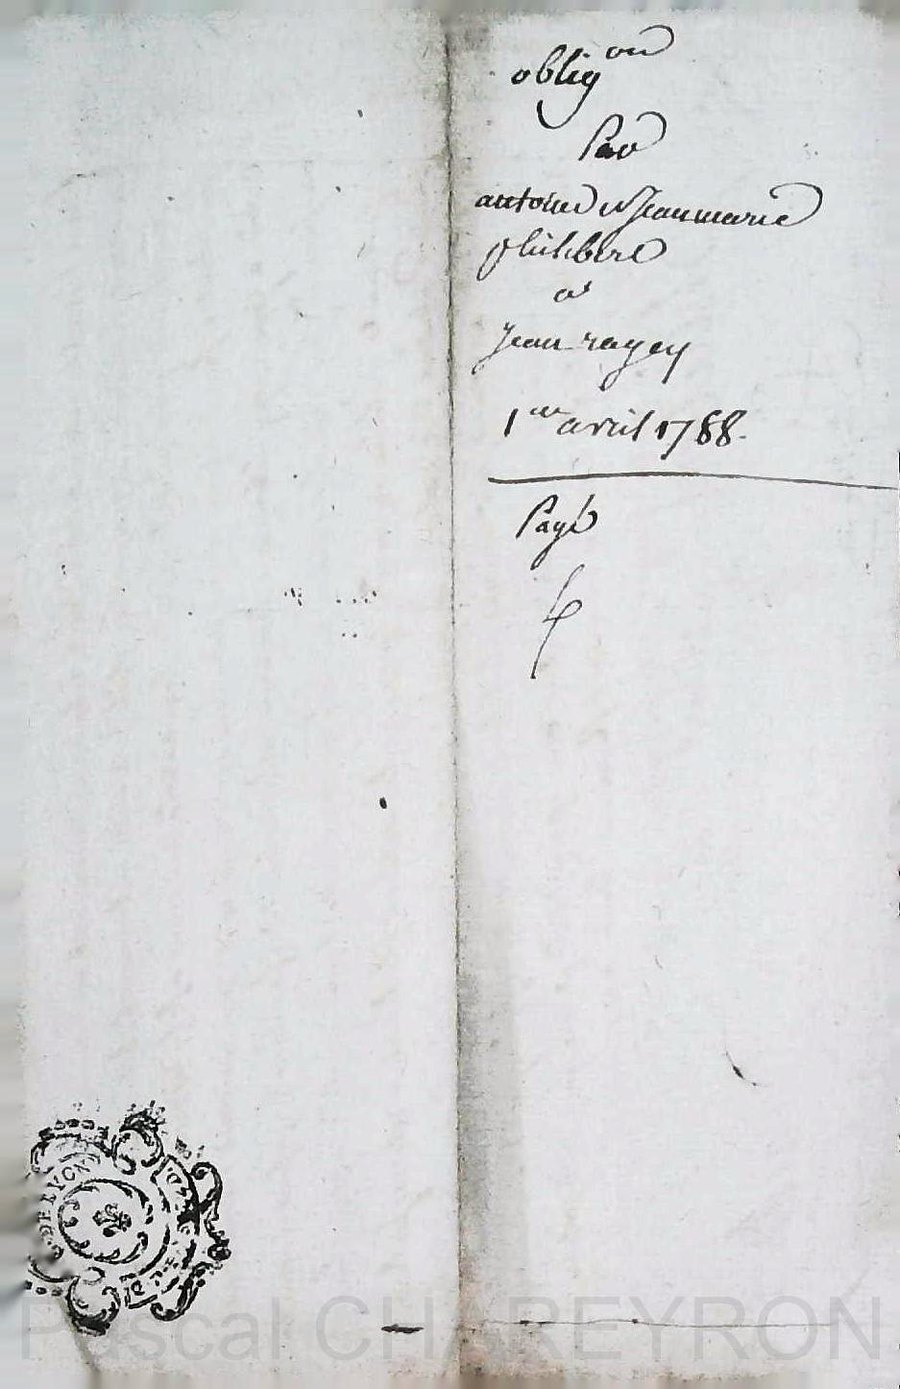 oblig^on
Par
antoine et Jeanmarie
philibert
a
Jean ragey
1^er avril 1788.
Payé
DE LYON
Pascal CHAREYRON